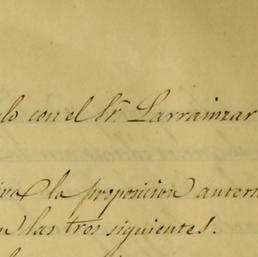 lo con el Sr. Larrainzar
iva la proposicion anter
n las tres siguientes.